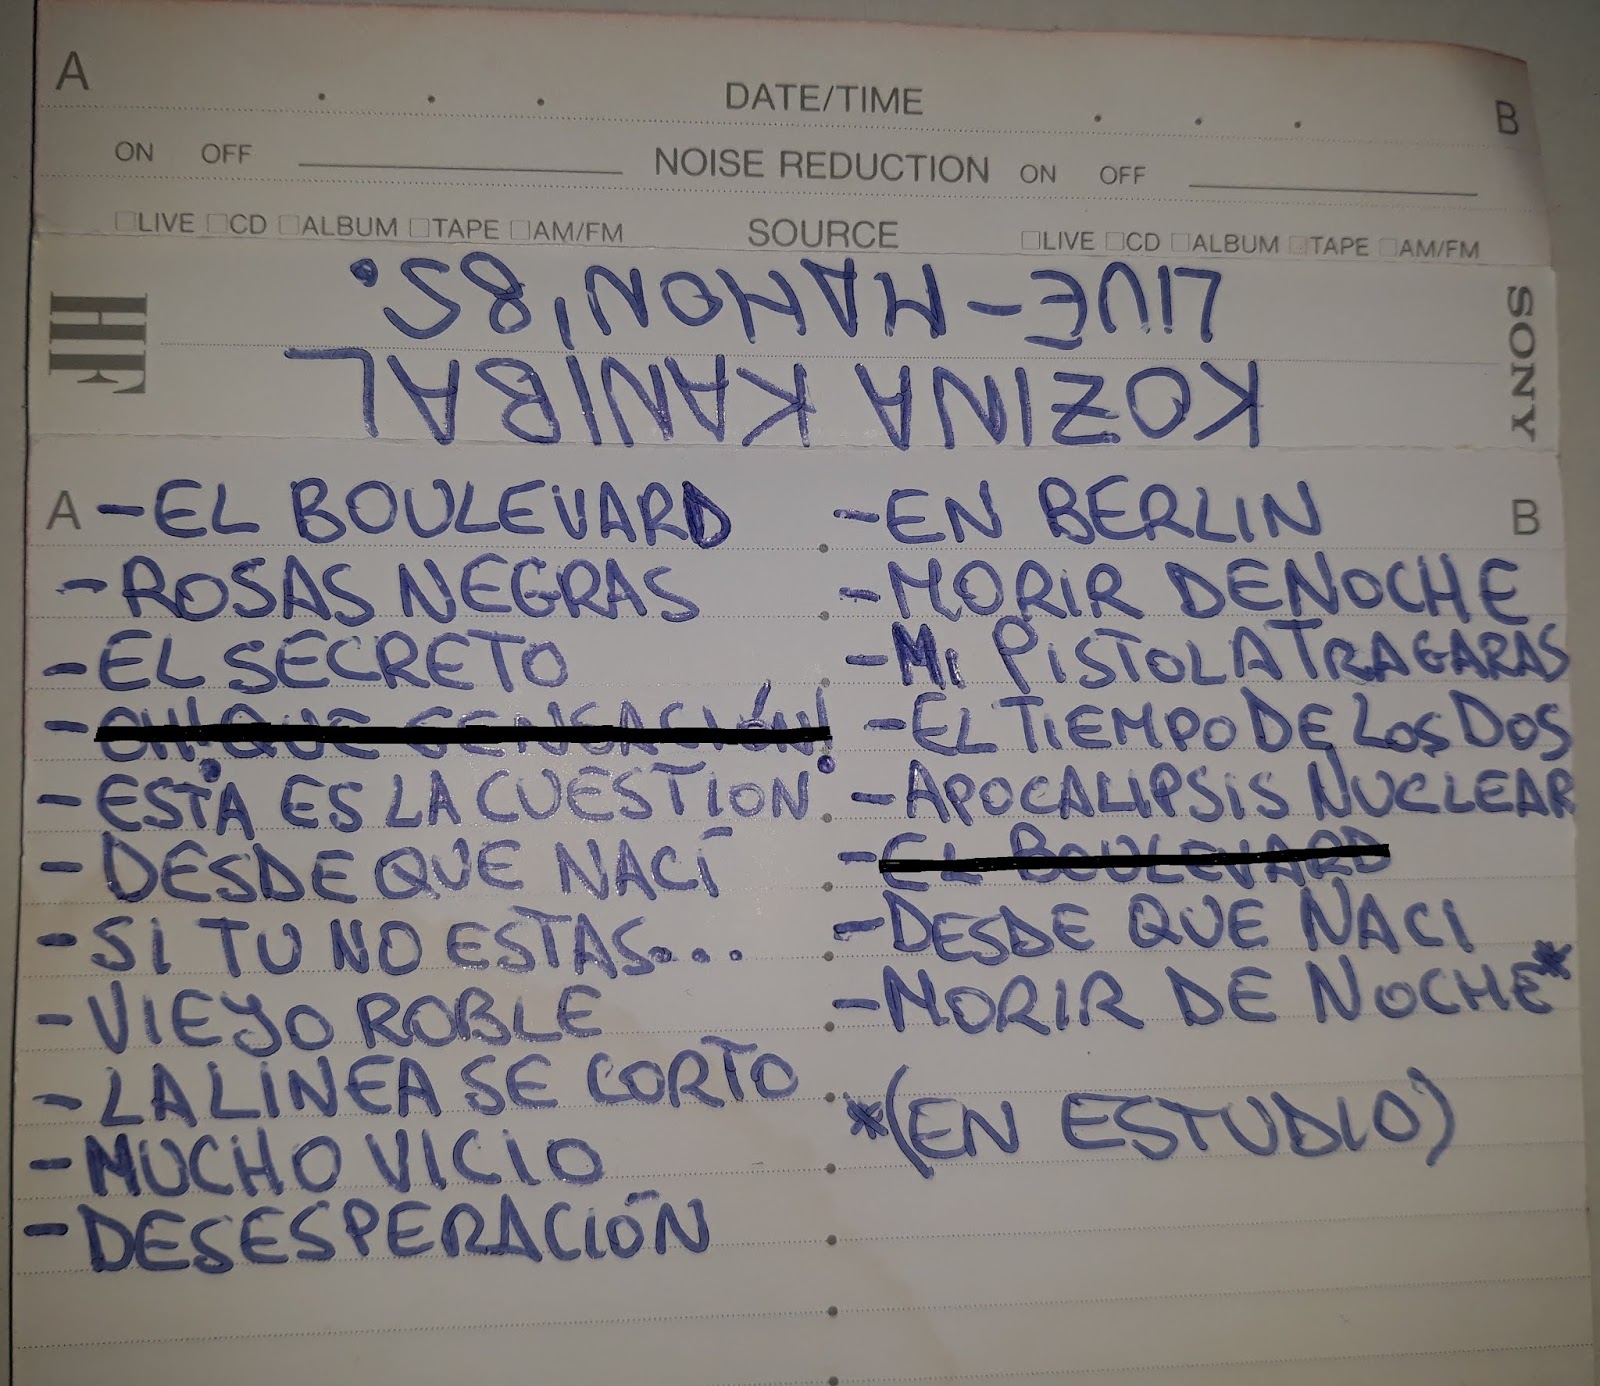 A DATE/TIME B
ON OFF NOISE REDUCTION ON OFF
LIVE CD ALBUM TAPE AM/FM SOURCE LIVE CD ALBUM TAPE AM/FM
HF SONY
KOZINA KANIBAL
LIVE - MAHON'85.
A B
- EL BOULEVARD
- ROSAS NEGRAS
- EL SECRETO
- OH! QUE SENSACIÓN!
- ESTA ES LA CUESTION
- DESDE QUE NACÍ
- SI TU NO ESTAS...
- VIEJO ROBLE
- LA LINEA SE CORTO
- MUCHO VICIO
- DESESPERACIÓN
- EN BERLIN
- MORIR DE NOCHE
- MI PISTOLA TRAGARAS
- EL TIEMPO DE LOS DOS
- APOCALIPSIS NUCLEAR
- EL BOULEVARD
- DESDE QUE NACI
- MORIR DE NOCHE*
*(EN ESTUDIO)